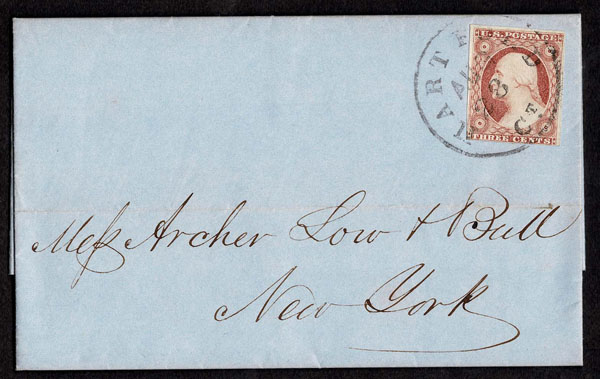 U.S. POSTAGE
THREE CENTS
HARTFORD
Mess Archer Low & Bull
New York